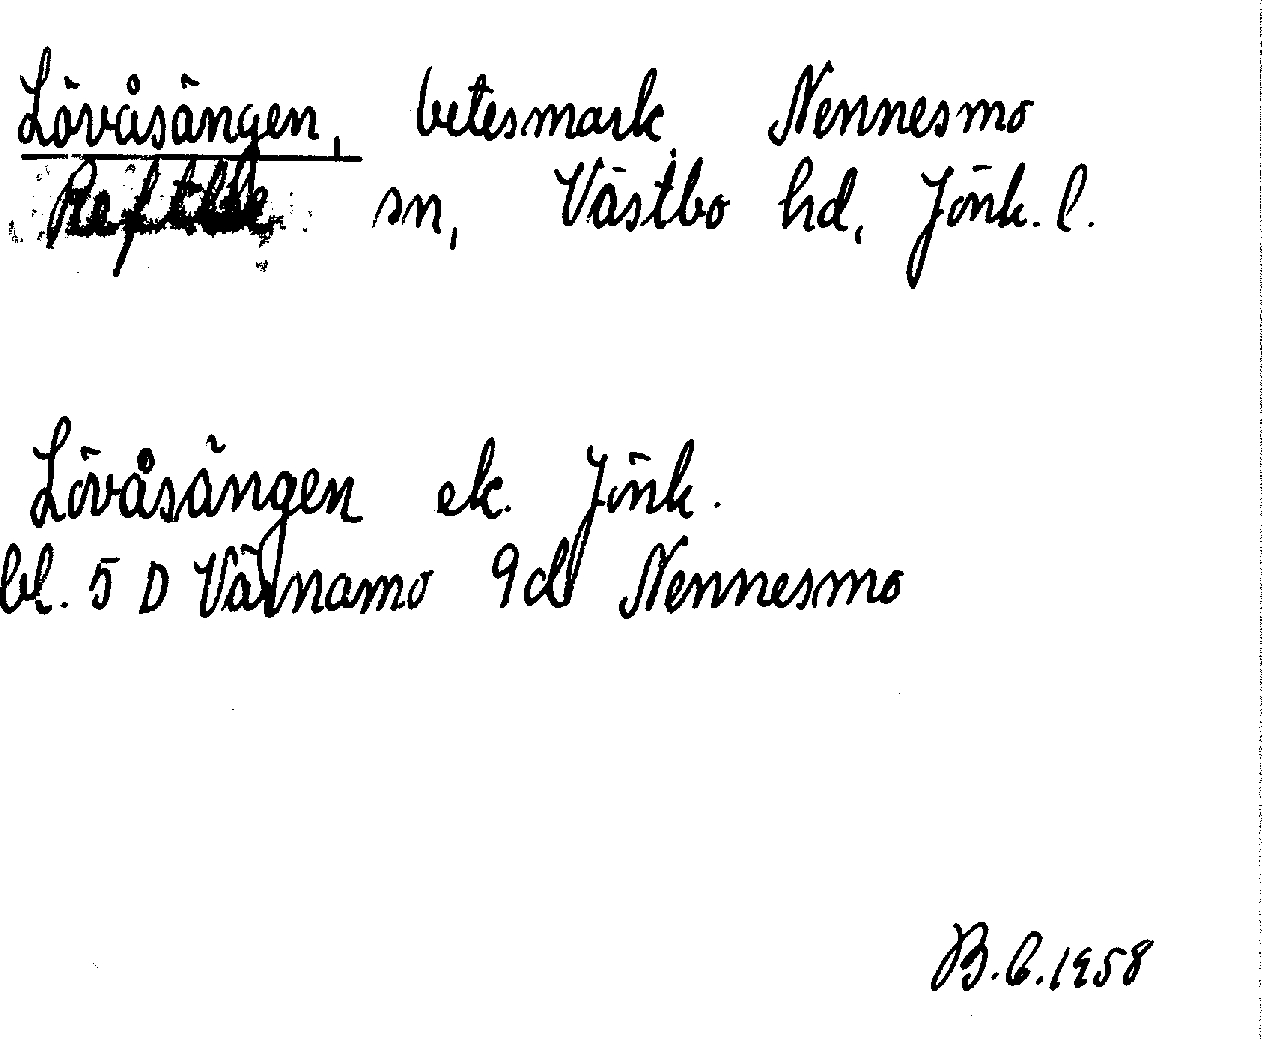 Lövåsängen, betesmark, Nennesmo
Reftele sn, Västbo hd, Jönk. l.
Lövåsängen ek. Jönk.
bl. 5 D Värnamo 9d Nennesmo
B.C.1958